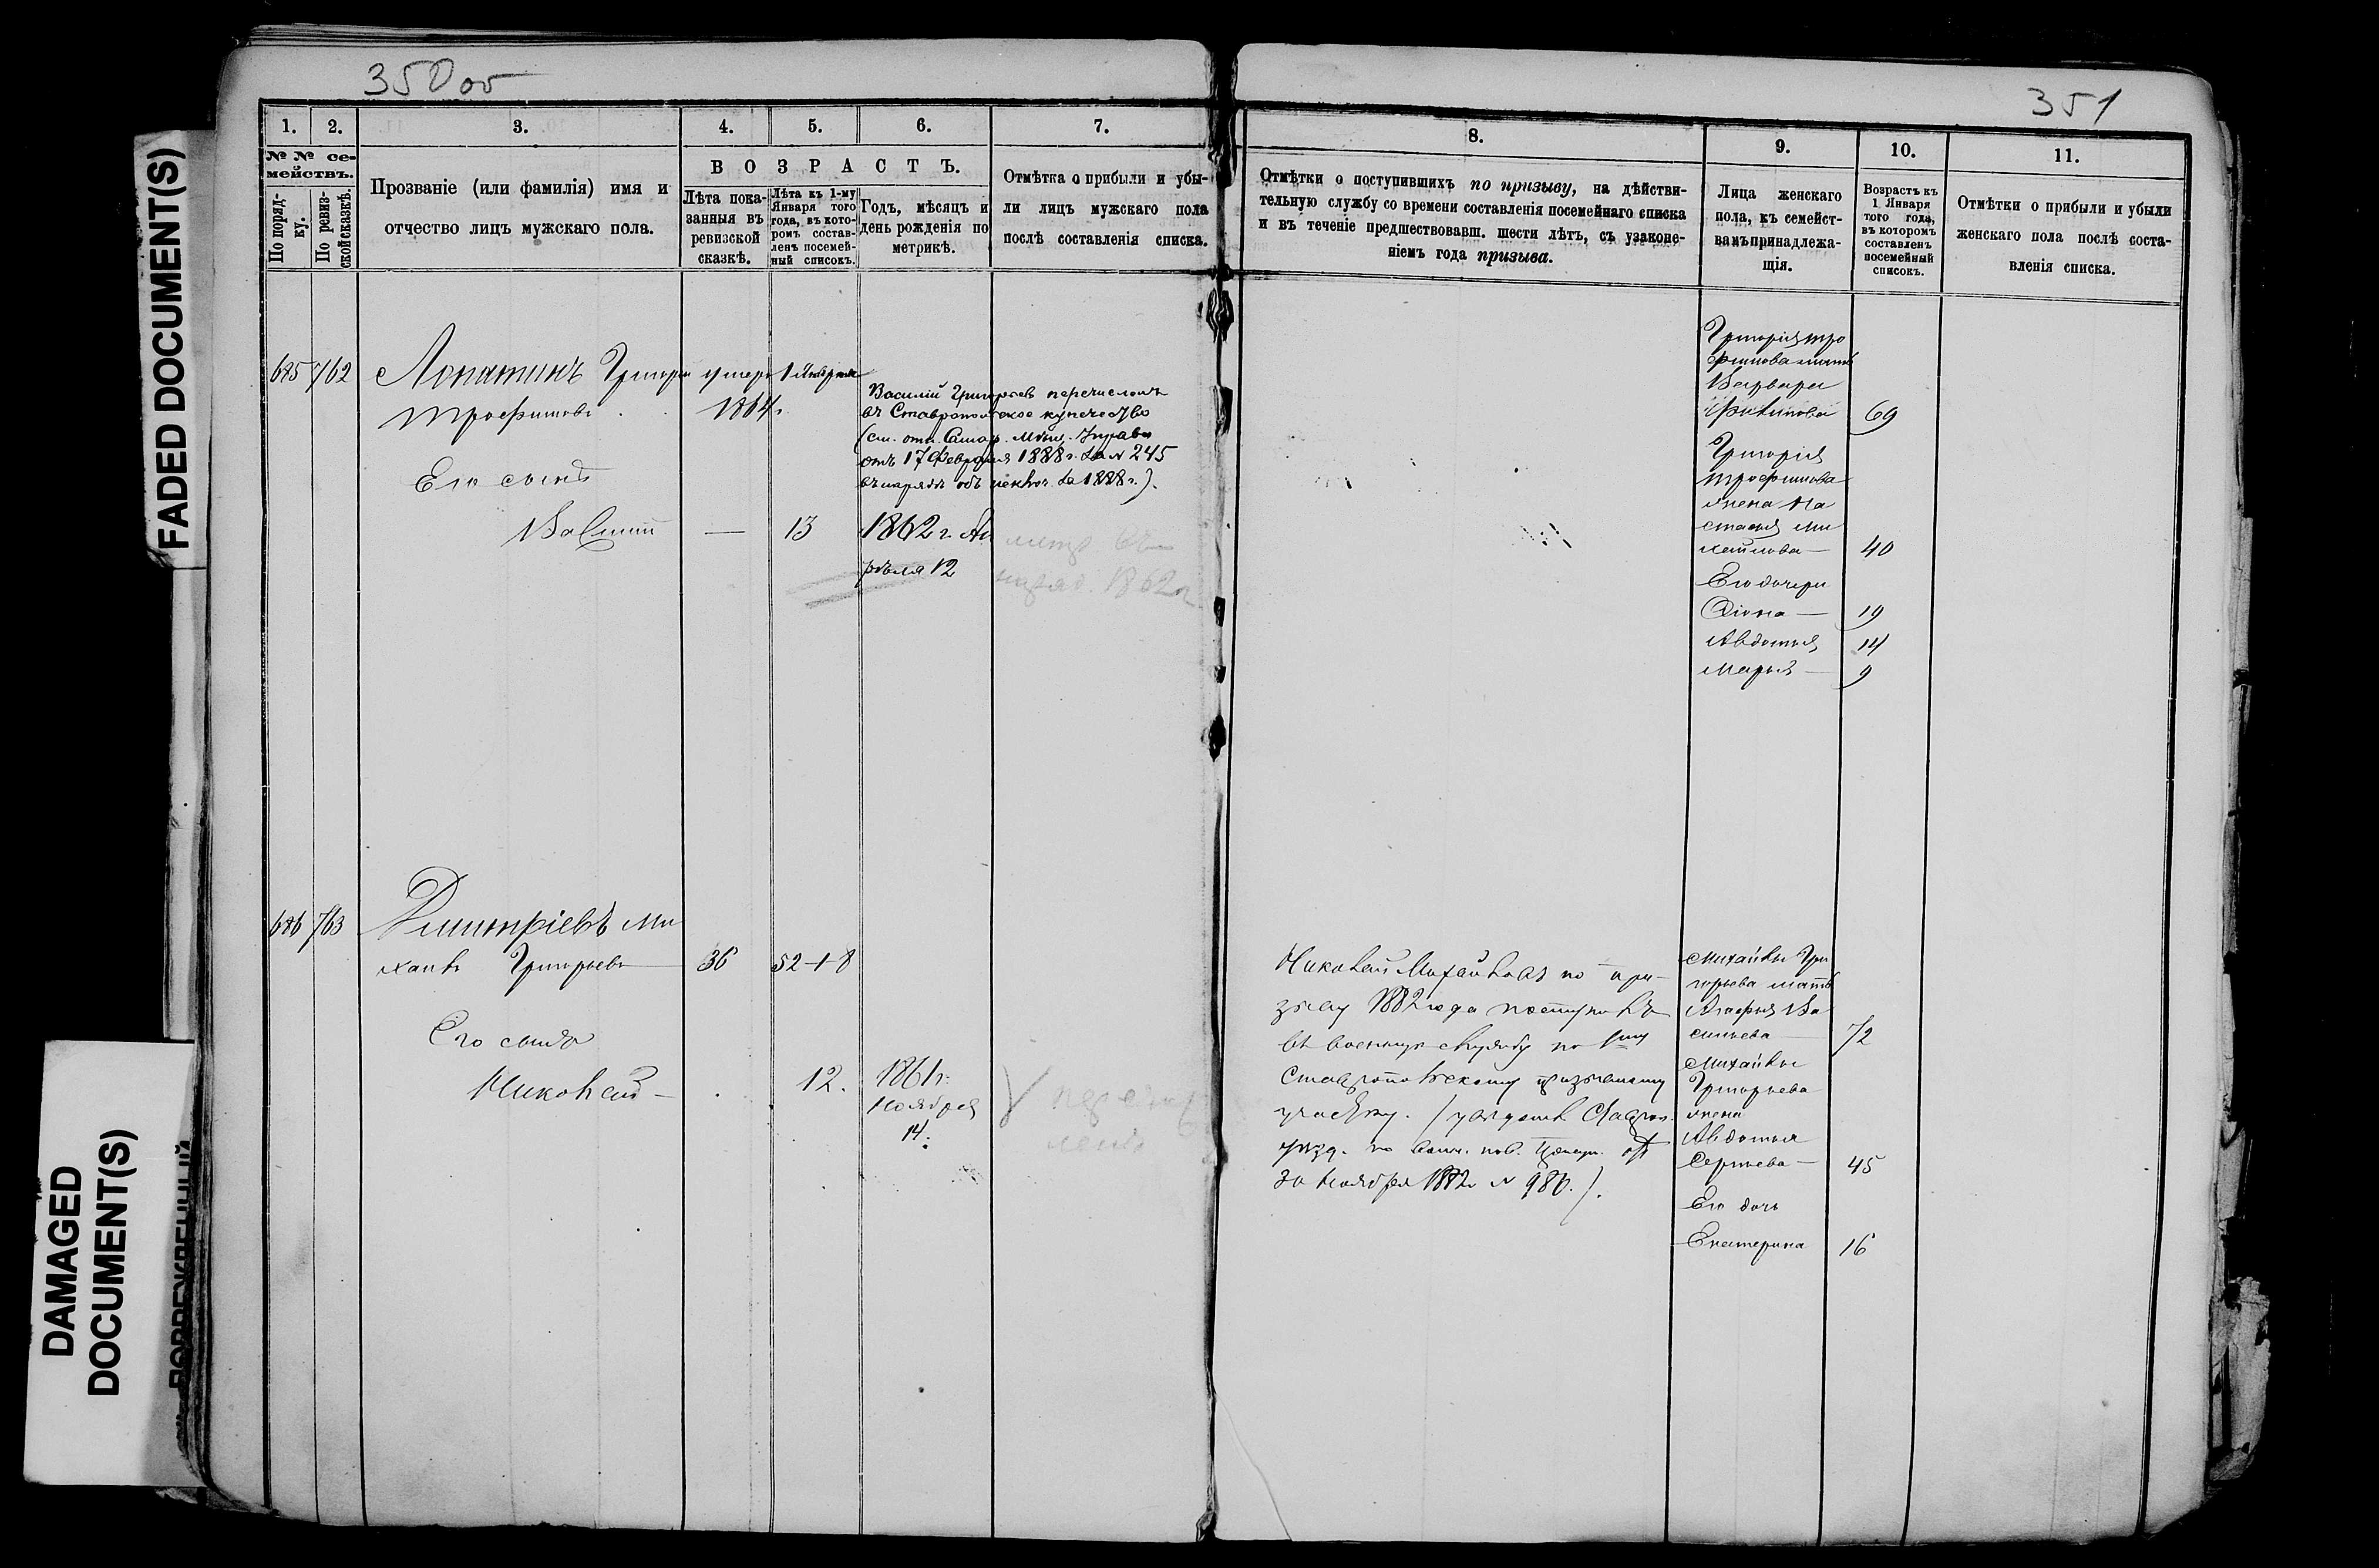 350 об
351
FADED DOCUMENT(S)
DAMAGED
DOCUMENT(S)
1.
2.
3.
4.
5.
6.
7.
8.
9.
10.
11.
№ № се-
мействъ.
По поряд-
ку.
По ревиз-
ской сказкѣ.
Прозваніе (или фамилія) имя и
отчество лицъ мужскаго пола.
ВОЗРАСТЪ.
Лѣта пока-
занныя въ
ревизской
сказкѣ.
Лѣта къ 1-му
Января того
года, въ кото-
ромъ состав-
ленъ посемей-
ный списокъ.
Годъ, мѣсяцъ и
день рожденія по
метрикѣ.
Отмѣтка о прибыли и убы-
ли лицъ мужскаго пола
послѣ составленія списка.
Отмѣтки о поступившихъ по призыву, на дѣйстви-
тельную службу со времени составленія посемейнаго списка
и въ теченіе предшествовавш. шести лѣтъ, съ узаконе-
ніемъ года призыва.
Лица женскаго
пола, къ семейст-
вамъ принадлежа-
щія.
Возрастъ къ
1 Января
того года,
въ которомъ
составленъ
посемейный
списокъ.
Отмѣтки о прибыли и убыли
женскаго пола послѣ соста-
вленія списка.
685 762 Лопатинъ Григорій умеръ 1 Января
Трофимовъ 1864 г.
Василій Григорьевъ перечисленъ
въ Ставропольское купечество
(см. отн. Самар. Мѣщ. Управы
отъ 17 Февраля 1888 г. за № 245
въ нарядѣ объ исключ. за 1888 г.).
Его сынъ
Василій — 13 1862 г. Ап
рѣля 12
1862 г.
Григорія Тро
фимова мать
Варвара
Филипова 69
Григорія
Трофимова
жена На
стасья Ми
хайлова — 40
Его дочери
Фіона — 19
Авдотья 14
Марья — 9
686 763 Дмитріевъ Ми
хаилъ Григорьевъ 36 52-1-8
Его сынъ
Николай — 12. 1861 г.
Ноября
14.
Николай Михайловъ по при-
зыву 1882 года поступилъ
въ военную службу по 1му
Ставропольскому призывному
участку. (увѣдомл. Ставроп.
уѣзд. по воин. пов. Присут. отъ
30 Ноября 1882 г. № 986.).
Михайлы Гри
горьева мать
Агафья Ва
сильева 72
Михайлы
Григорьева
жена
Авдотья
Сергѣева — 45
Его дочь
Екатерина 16